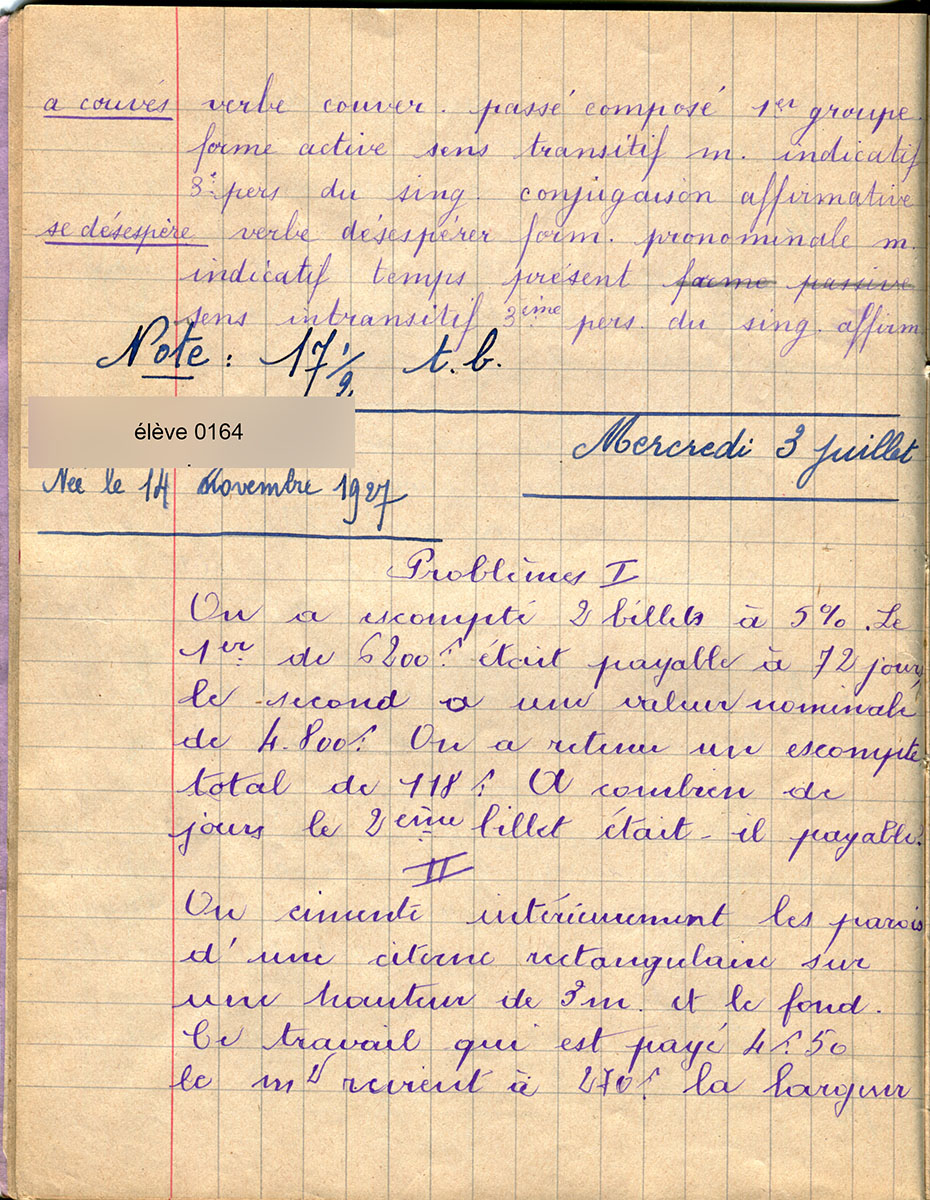 a couvés verbe couver. passé composé 1er groupe.
forme active sens transitif m. indicatif
3e pers du sing. conjugaison affirmative
se désespère verbe désespérer form. pronominale m.
indicatif temps présent forme passive
sens intransitif 3ième pers. du sing. affirm
Note : 17 1/2 t.b.
élève 0164
Mercredi 3 juillet
Née le 14 novembre 1927
Problèmes I
On a escompté 2 billets à 5%. Le
1er de 6200f était payable à 72 jours,
le second a une valeur nominale
de 4.800f. On a retenu un escompte
total de 118f. A combien de
jours le 2ème billet était-il payable?
II
On cimente intérieurement les parois
d'une citerne rectangulaire sur
une hauteur de 3m. et le fond.
Ce travail qui est payé 4f50
le m2 revient à 270f la largeur